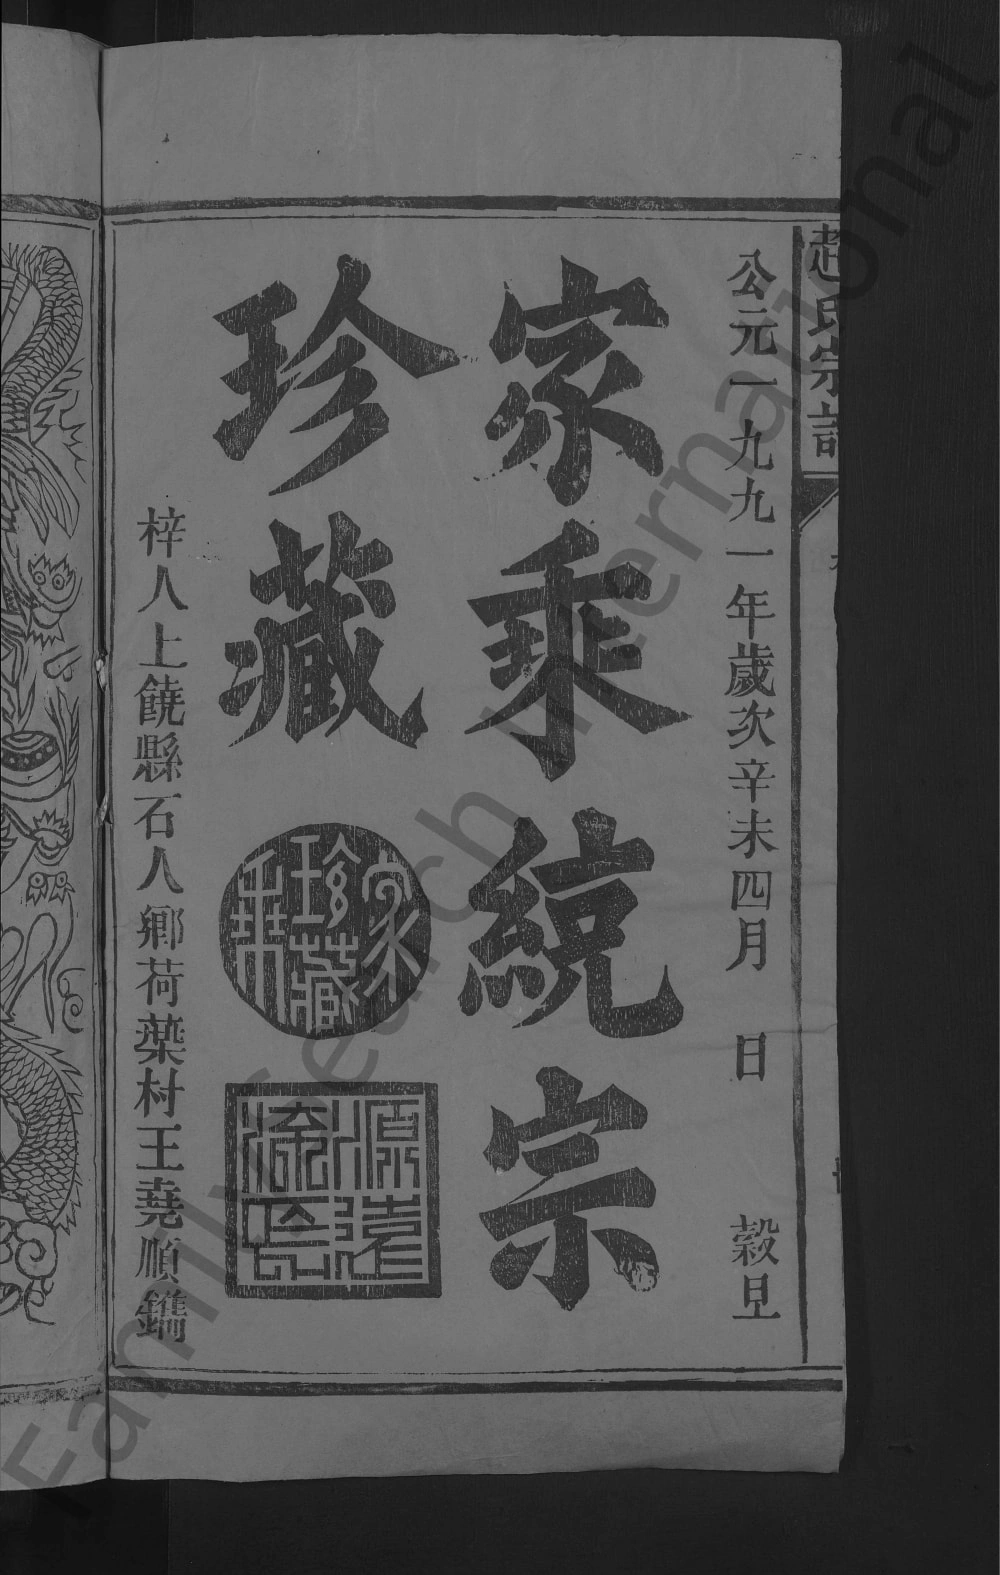 趙氏宗譜
公元一九九一年歲次辛未四月 日 穀旦
家乘統宗
珍藏
家乘珍藏
源遠流長
梓人上饒縣石人鄉荷葉村王堯順鐫
FamilySearch International